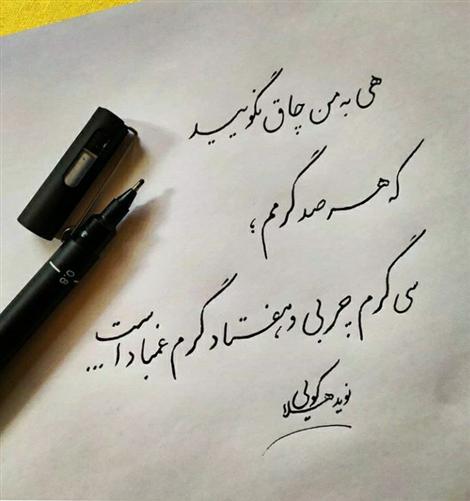 هی به من چاق نگویید
که هر صد گرمم ؛
سی گرم چربی و هفتاد گرم غمباد است...
نوید گیلاکویی
0.8